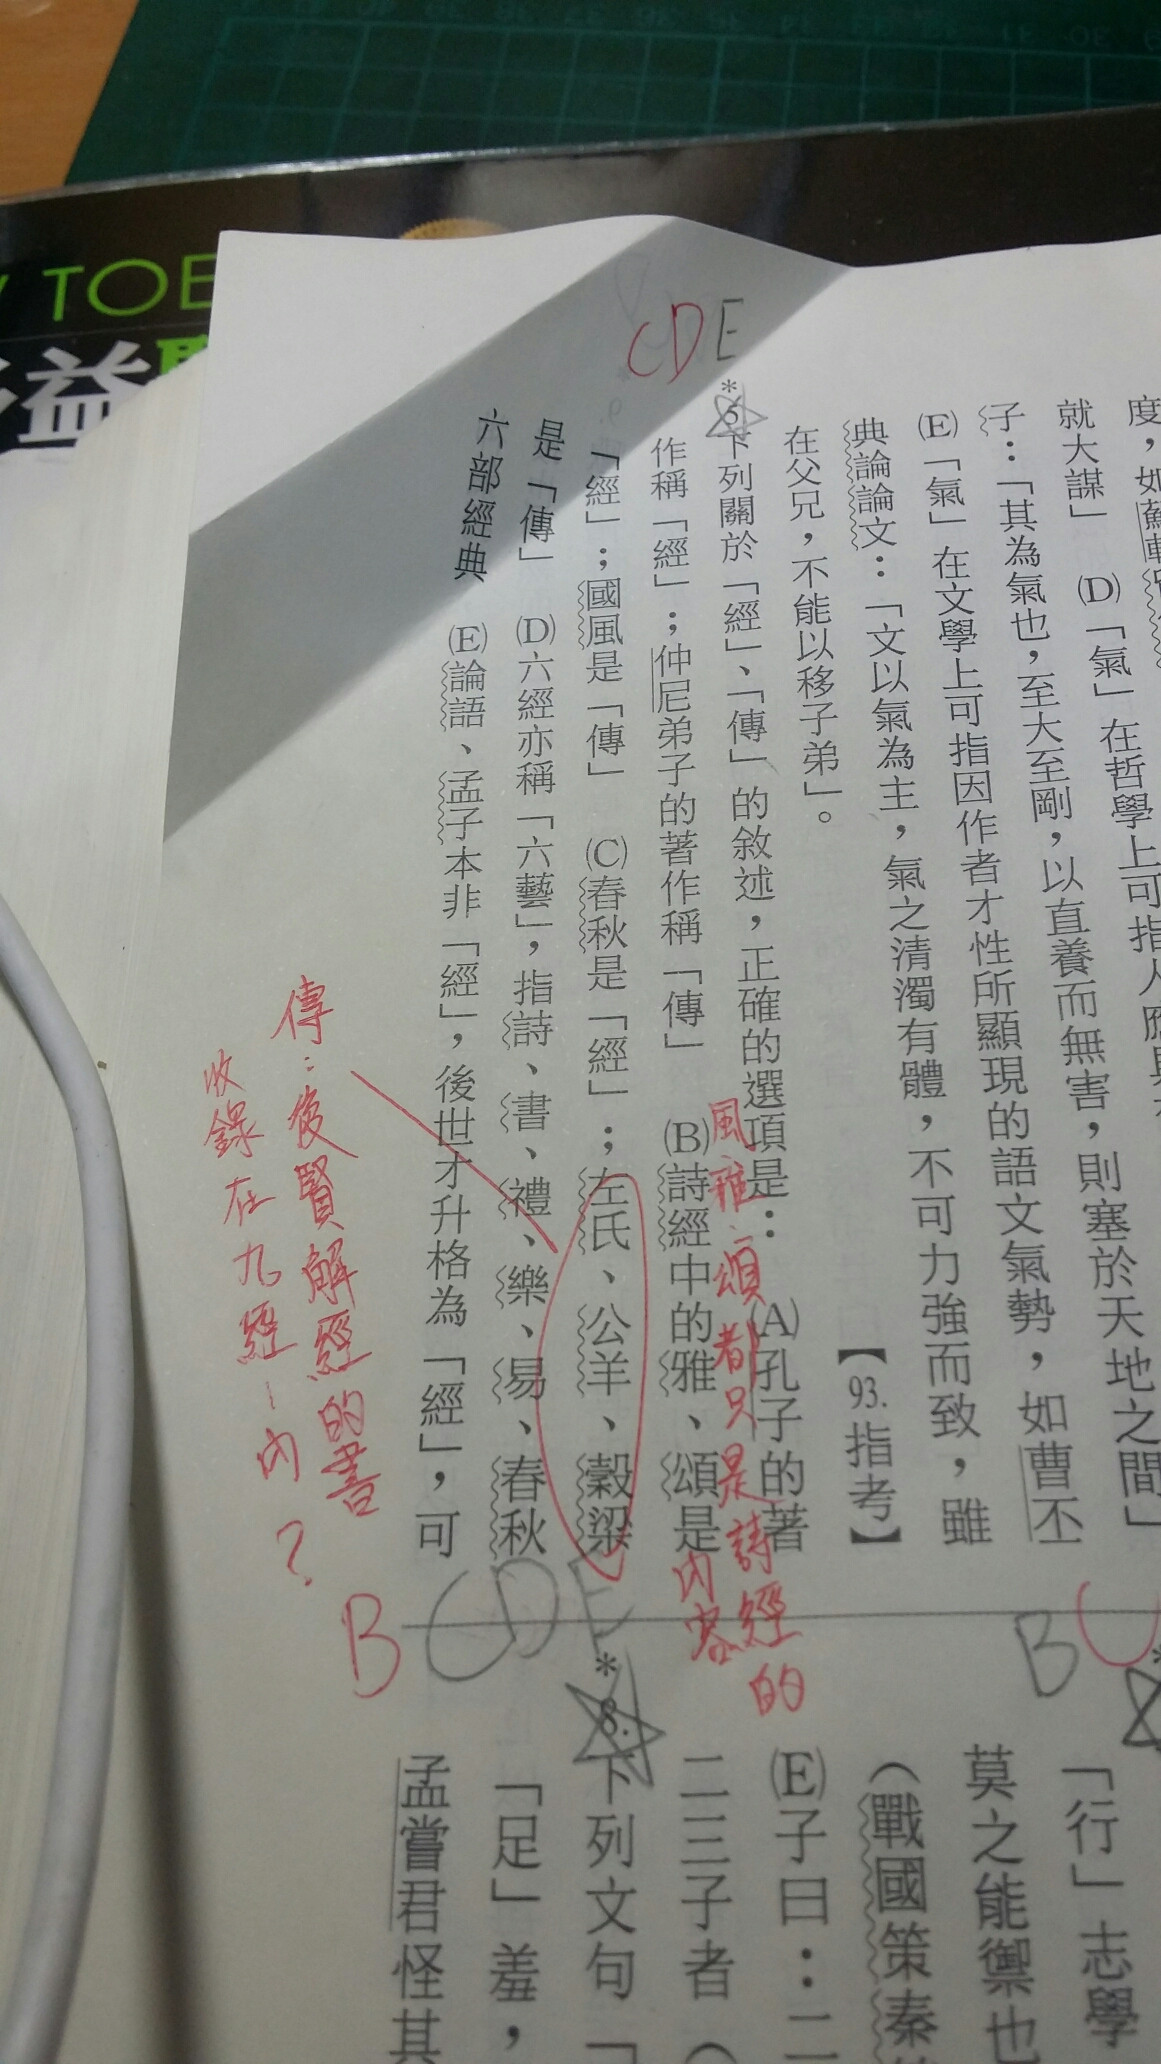 TOE
益
CDE
度，如蘇軾
就大謀」 (D)「氣」在哲學上可指人
子：「其為氣也，至大至剛，以直養而無害，則塞於天地之間」
(E)「氣」在文學上可指因作者才性所顯現的語文氣勢，如曹丕
典論論文：「文以氣為主，氣之清濁有體，不可力強而致，雖
在父兄，不能以移子弟」。
【93.指考】
*5.下列關於「經」、「傳」的敘述，正確的選項是： (A)孔子的著
作稱「經」；仲尼弟子的著作稱「傳」 (B)詩經中的雅、頌是
「經」；國風是「傳」 (C)春秋是「經」；左氏、公羊、穀梁
是「傳」 (D)六經亦稱「六藝」，指詩、書、禮、樂、易、春秋
六部經典 (E)論語、孟子本非「經」，後世才升格為「經」，可
風雅、頌都只是詩經的
內容
傳：後賢解經的書
收錄在九經內？
B
「行」志學
莫之能禦也
（戰國策秦
(E)子曰：二
二三子者（
B CDE
*8.下列文句「
「足」羞，
孟嘗君怪其